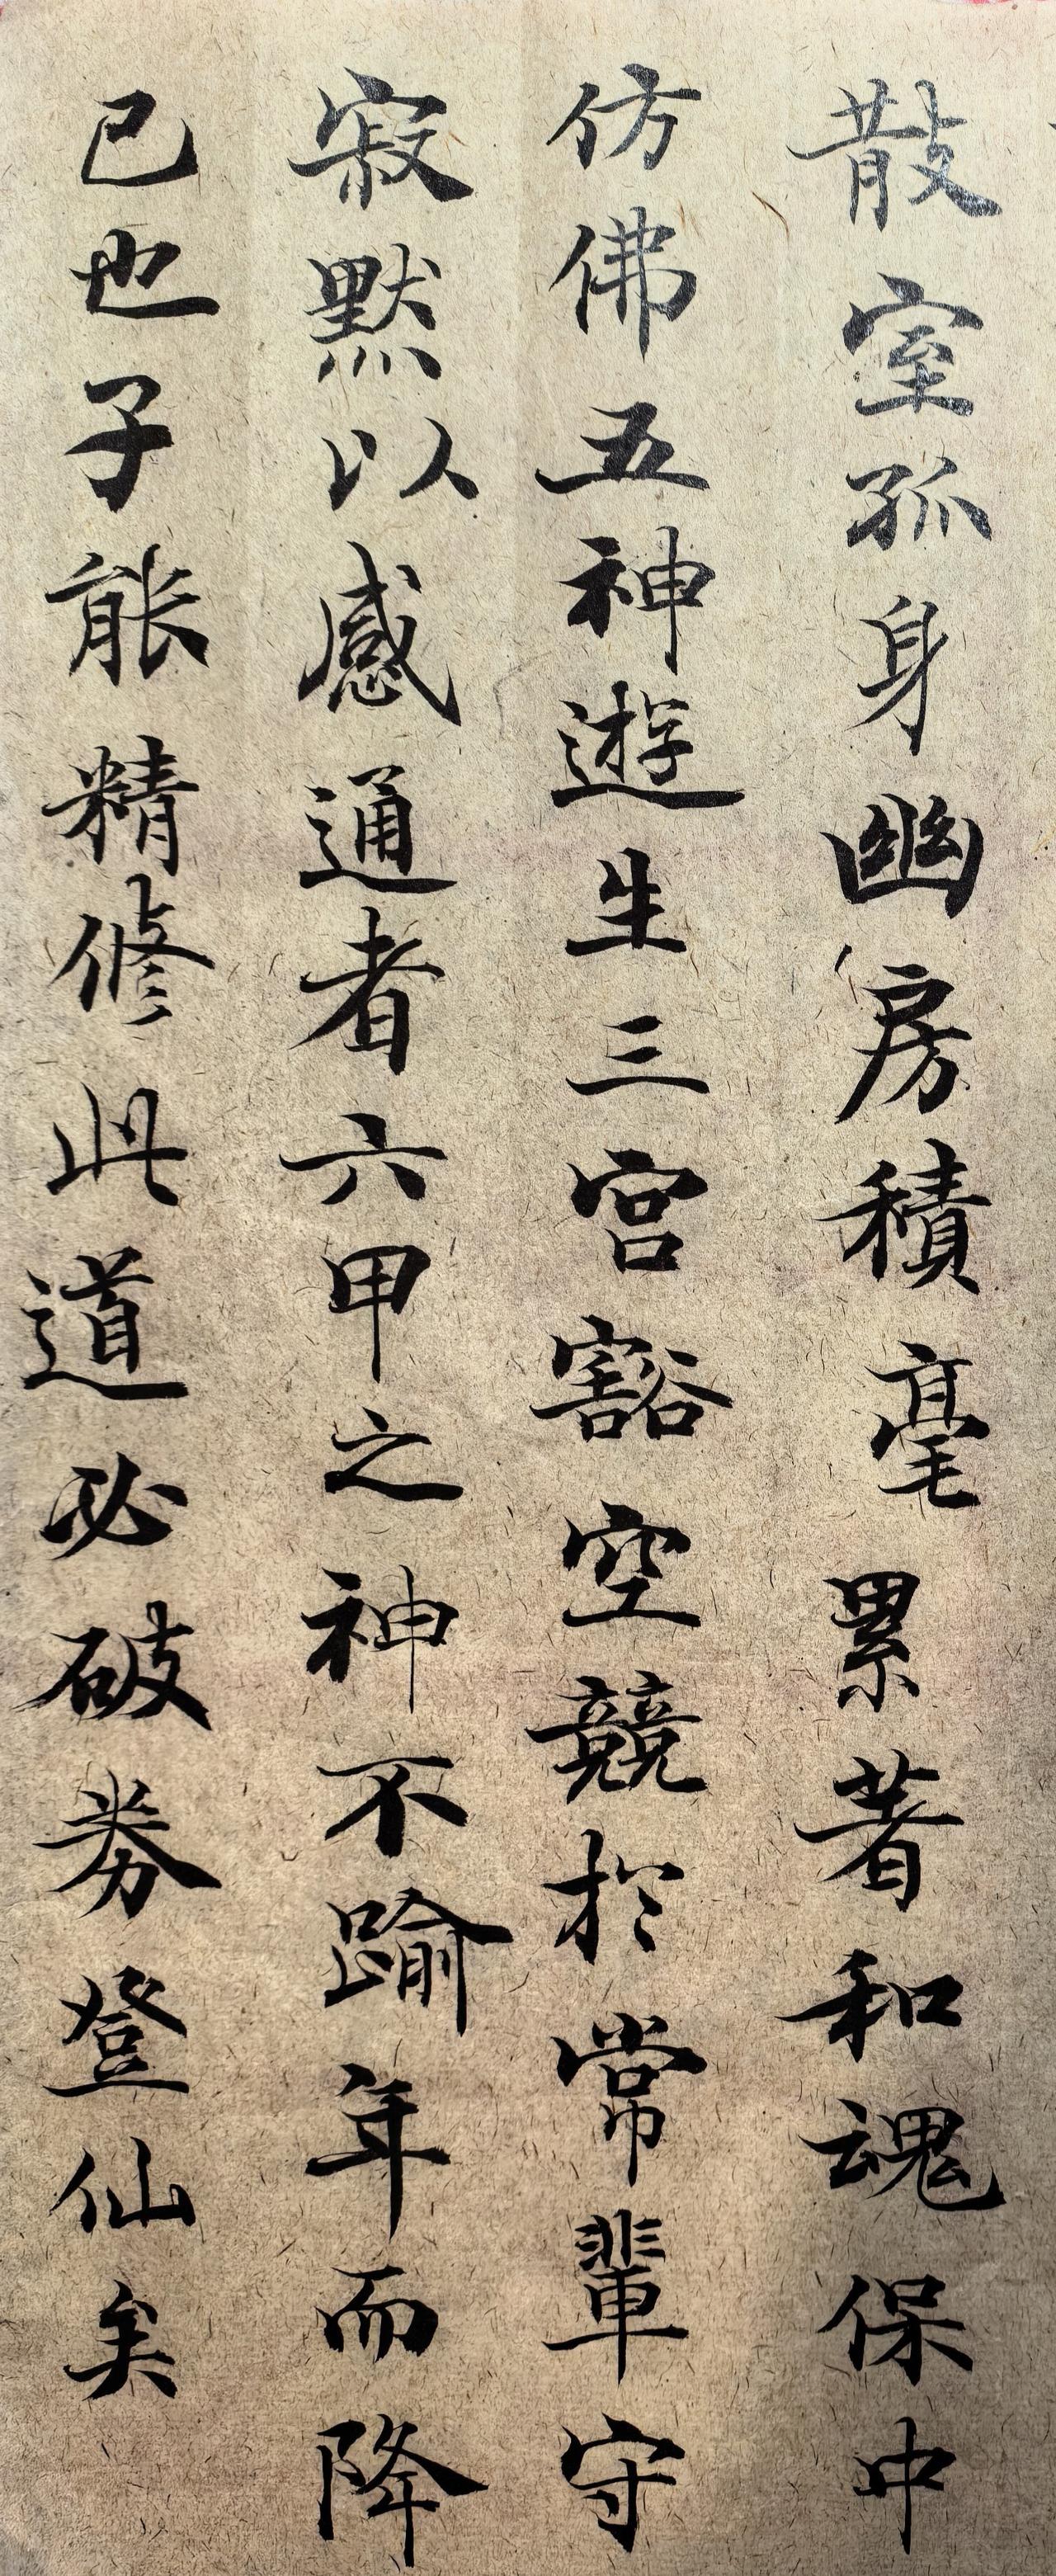 散室孤身幽房積毫累著和魂保中
仿佛五神遊生三宮豁空競於常輩守
寂默以感通者六甲之神不踰年而降
已也子能精修此道必破券登仙矣